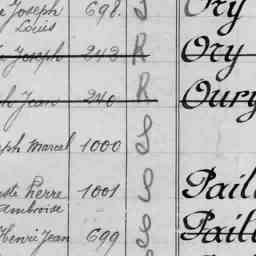 Joseph 698. S Ory
Louis
Joseph 243 R Ory
Jean 240 R Oury
Marcel 1000 S
Pierre 1001 S Pail
Ambroise
Henri Jean 699 S Pail